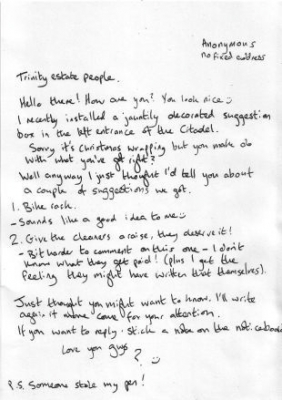 Anonymous
no fixed address
Trinity estate people.
Hello there! How are you? You look nice :)
I recently installed a jauntily decorated suggestion
box in the left entrance of the Citadel.
Sorry it's christmas wrapping but you make do
with what you've got right?
Well anyway I just thought I'd tell you about
a couple of suggestions we got.
1. Bike rack.
- Sounds like a good idea to me :)
2. Give the cleaners a raise, they deserve it!
- Bit harder to comment on this one - I don't
know what they get paid! (plus I get the
feeling they might have written that themselves).
Just thought you might want to know. I'll write
again if more come for your attention.
If you want to reply - stick a note on the noticeboard
Love you guys
? :)
P.S. Someone stole my pen!